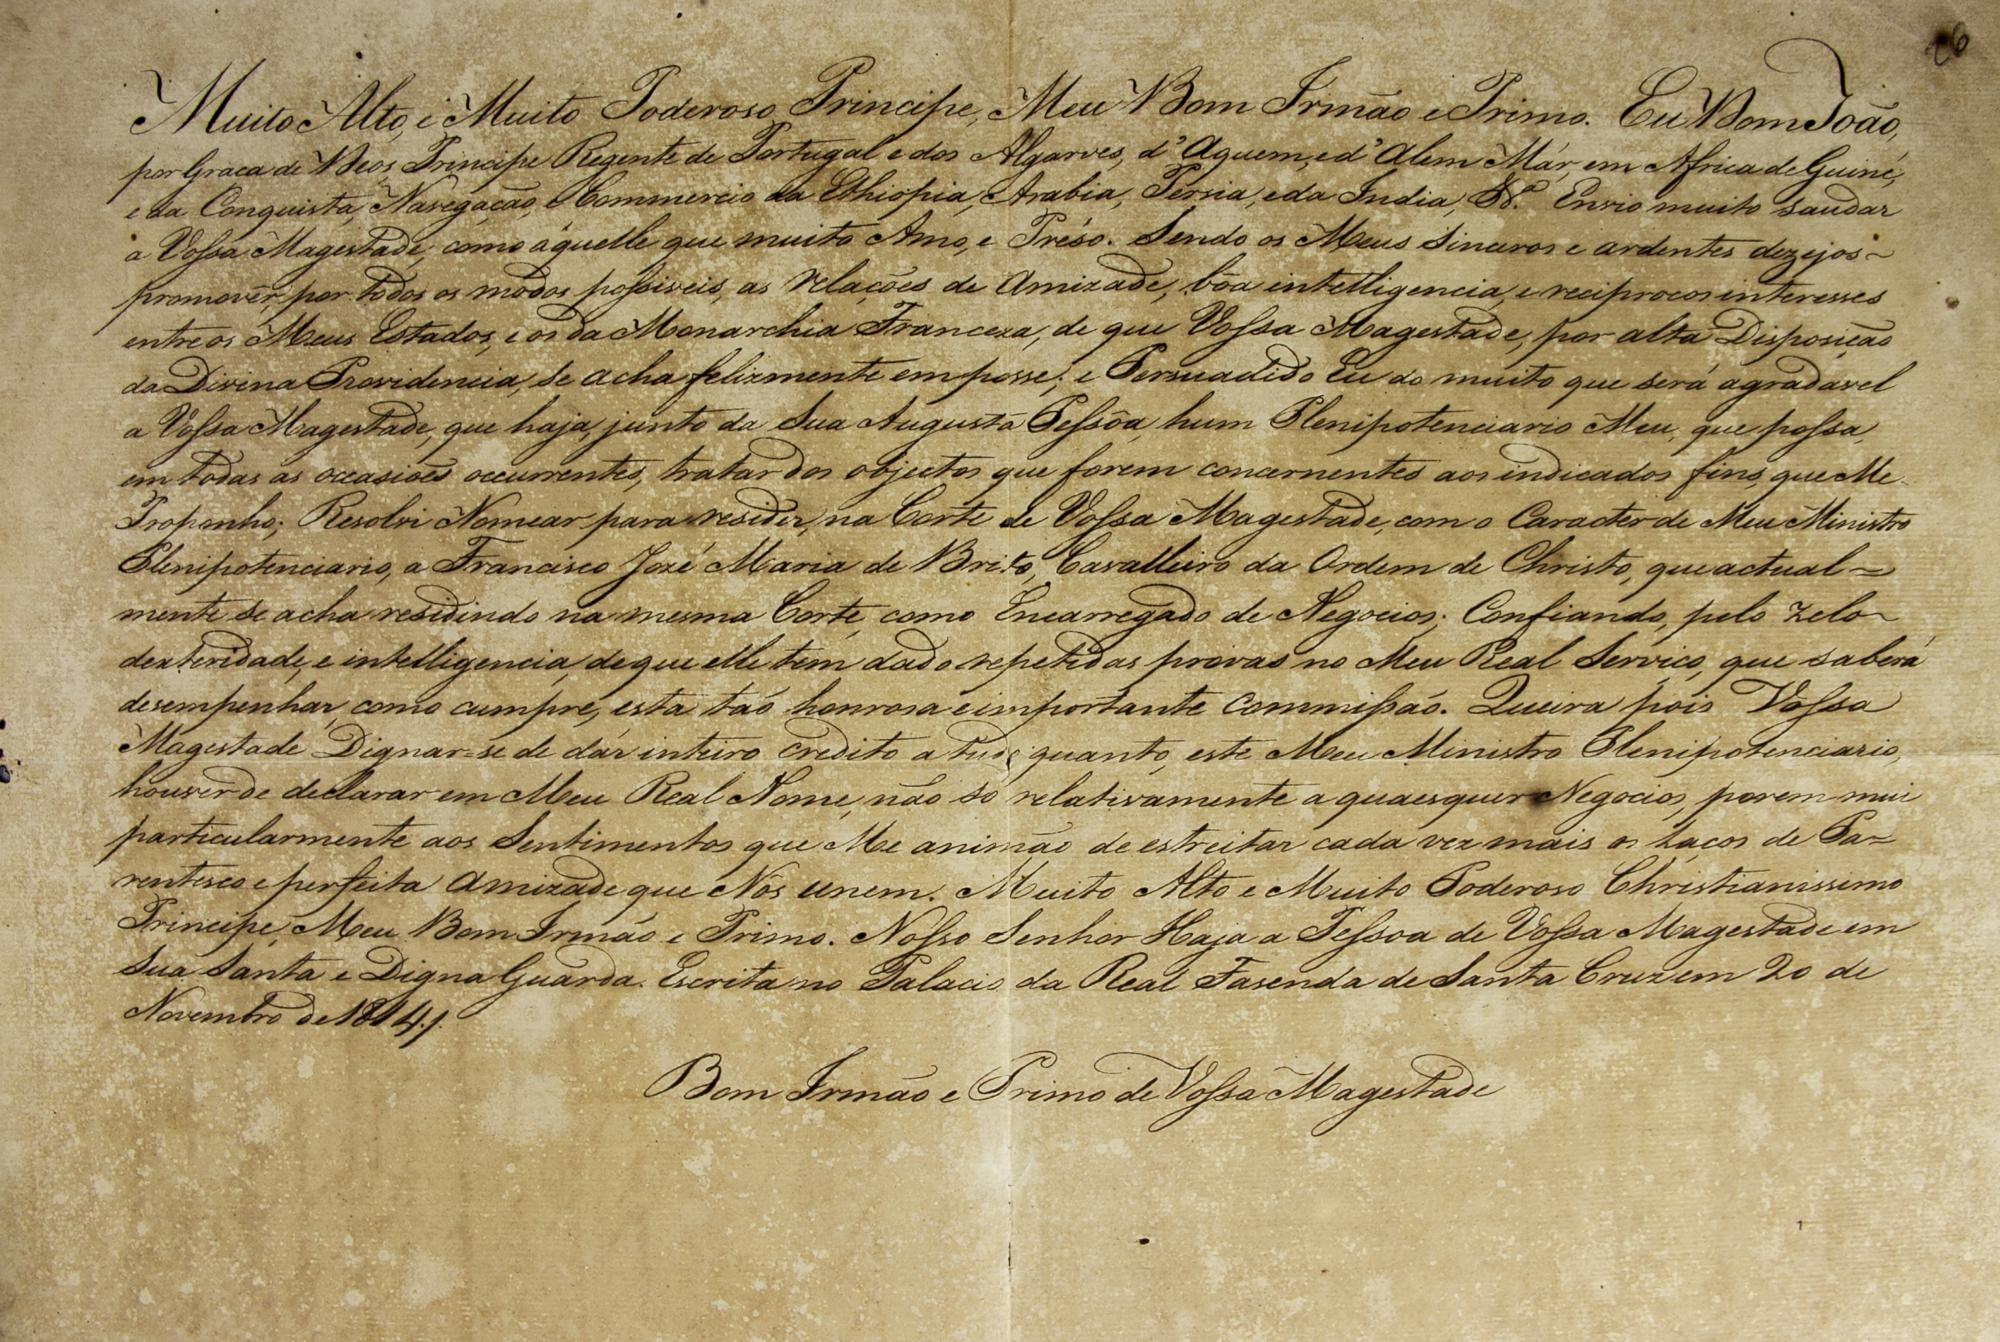 26
Muito Alto, e Muito Poderoso Principe, Meu Bom Irmão e Primo. Eu Dom João,
por Graça de Deos Principe Regente de Portugal e dos Algarves, d'Aquem, e d'Alem Már, em Africa de Guiné,
e da Conquista, Navegação, e Commercio da Ethiopia, Arabia, Persia, e da India, &ª. Envio muito saudar
a Vossa Magestade, como áquelle que muito Amo, e Prézo. Sendo os Meus sinceros e ardentes dezejos
promovêr, por todos os módos possiveis, as relações de Amizade, bôa intelligencia, e reciprocos interesses
entre os Meus Estados, e os da Monarchia Franceza, de que Vossa Magestade, por alta Disposição
da Divina Providencia, se acha felizmente em posse; e Persuadido Eu do muito que será agradavel
a Vossa Magestade, que haja, junto da Sua Augusta Pessôa, hum Plenipotenciario Meu, que possa,
em todas as occasiões occurrentes, tratar dos objectos que forem concernentes aos indicados fins, que Me
Proponho; Resolvi Nomear para residir, na Corte de Vossa Magestade, com o Caracter de Meu Ministro
Plenipotenciario, a Francisco José Maria de Brito, Cavalleiro da Ordem de Christo, que actual=
mente se acha residindo na mesma Corte, como Encarregado de Negocios; Confiando, pelo zelo
dexteridade, e intelligencia, de que elle tem dado repetidas provas no Meu Real Serviço, que saberá
desempenhar, como cumpre, esta tão honrosa e importante Commissão. Queira pois Vossa
Magestade Dignar-se de dár inteiro credito a tudo quanto, este Meu Ministro Plenipotenciario,
houver de declarar em Meu Real Nome, não só relativamente a quaesquer Negocios, porem mui
particularmente aos Sentimentos que Me animão de estreitar cada vez mais os Laços de Pa=
rentesco e perfeita Amizade que Nós unem. Muito Alto e Muito Poderoso Christianissimo
Principe, Meu Bom Irmão e Primo. Nosso Senhor Haja a Pessoa de Vossa Magestade em
Sua Santa e Digna Guarda. Escrita no Palacio da Real Fasenda de Santa Cruz em 20 de
Novembro de 1814.
Bom Irmão e Primo de Vossa Magestade